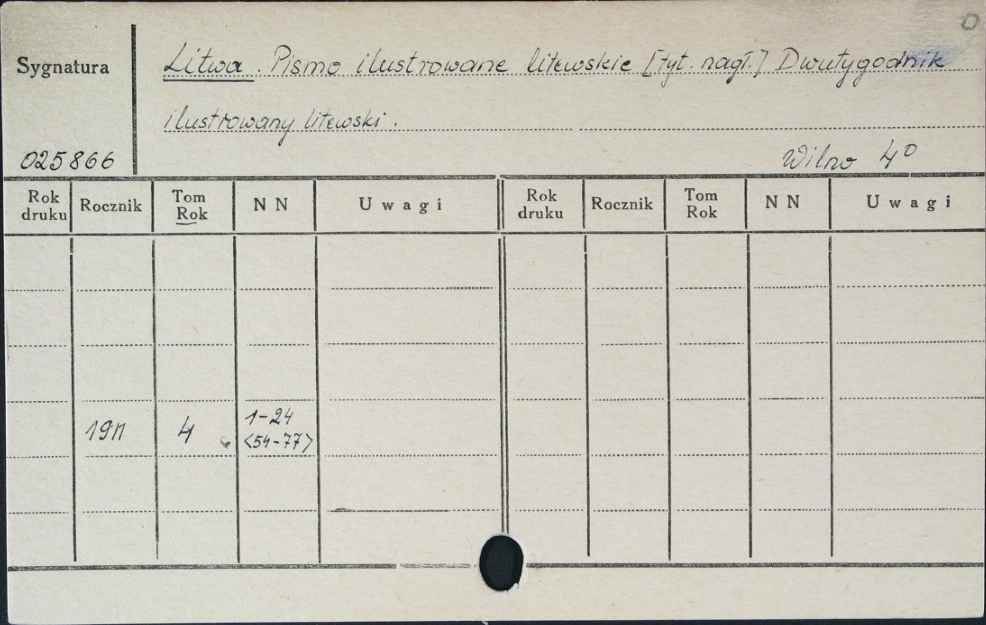 Sygnatura
Litwa. Pismo ilustrowane litewskie [tyt. nagł.] Dwutygodnik
ilustrowany litewski.
025866
Wilno 4º
Rok druku Rocznik Tom Rok N N Uwagi Rok druku Rocznik Tom Rok N N Uwagi
1911 4 1-24
<54-77>